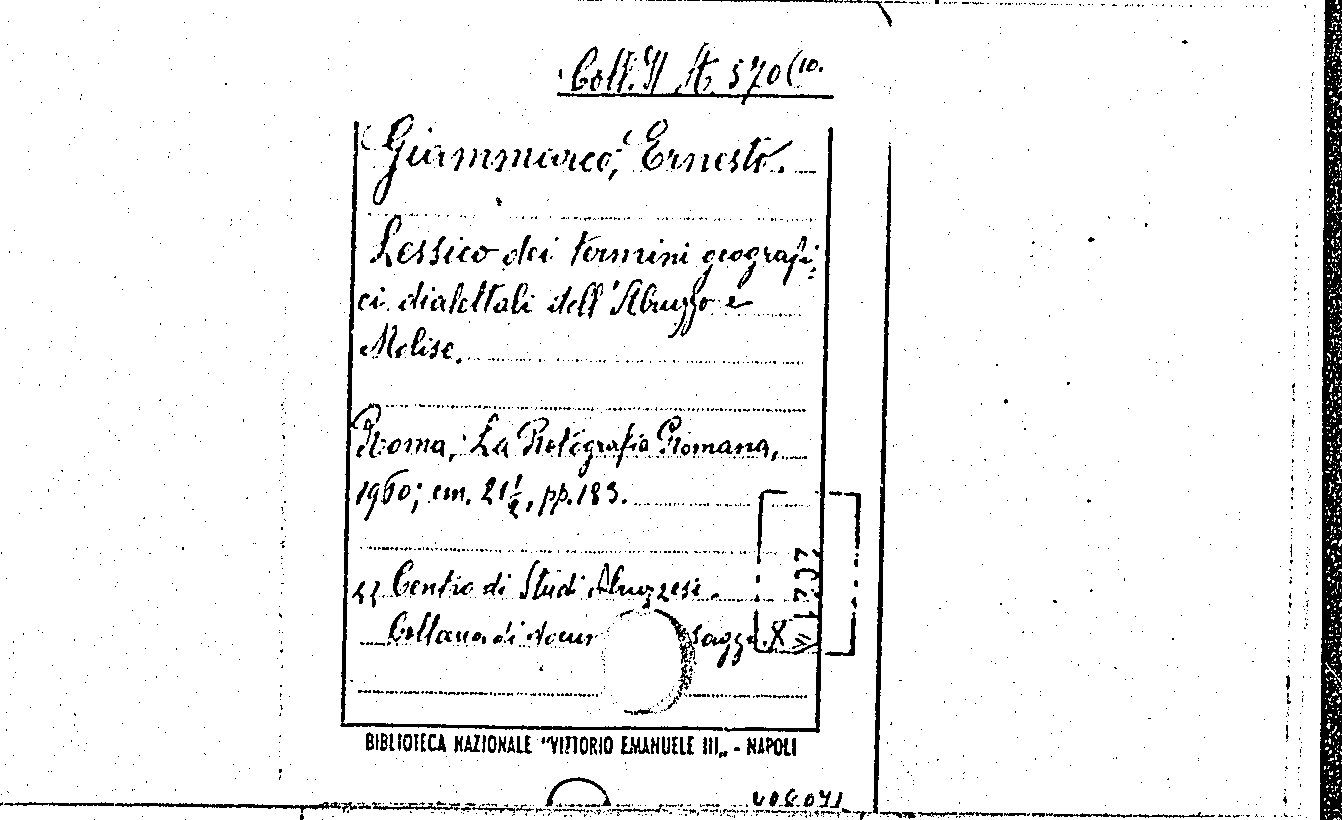 Coll. It A. 570(10.
Giammarco, Ernesto.
Lessico dei termini geografi-
ci dialettali dell'Abruzzo e
Molise.
Roma, La Rotografia Romana,
1960; cm. 21½, pp. 183.
Centro di Studi Abruzzesi.
Collana di docum saggi. X
BIBLIOTECA NAZIONALE "VITTORIO EMANUELE III„ - NAPOLI